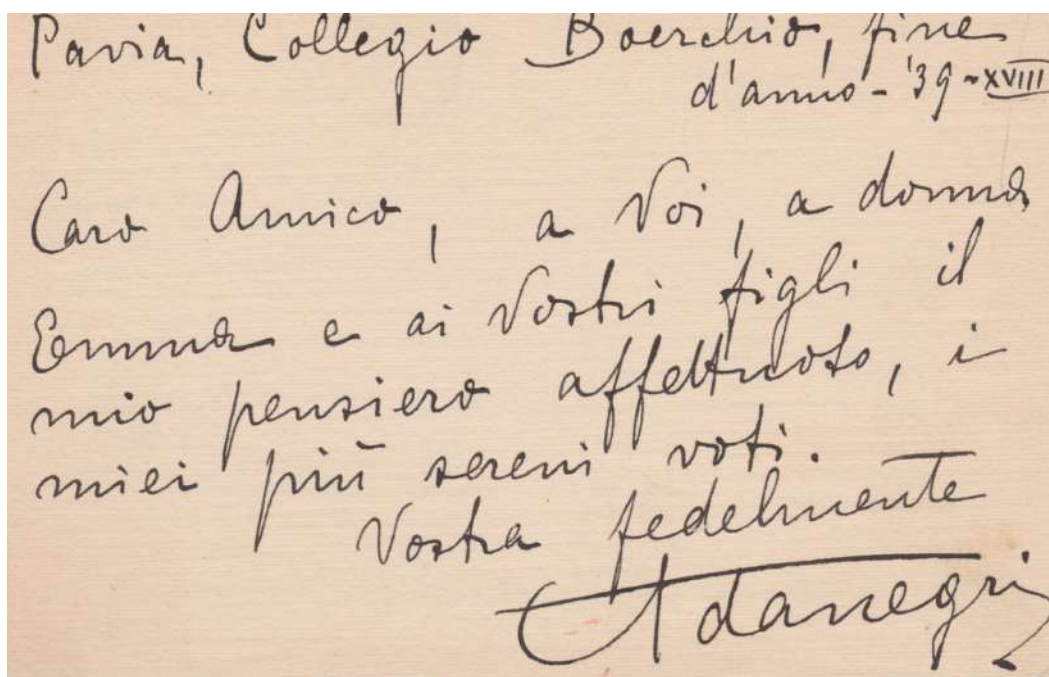 Pavia, Collegio Boerchio, fine
d'anno - '39 - XVIII
Caro Amico, a Voi, a donna
Emma e ai Vostri figli il
mio pensiero affettuoso, i
miei più sereni voti.
Vostra fedelmente
Adanegri